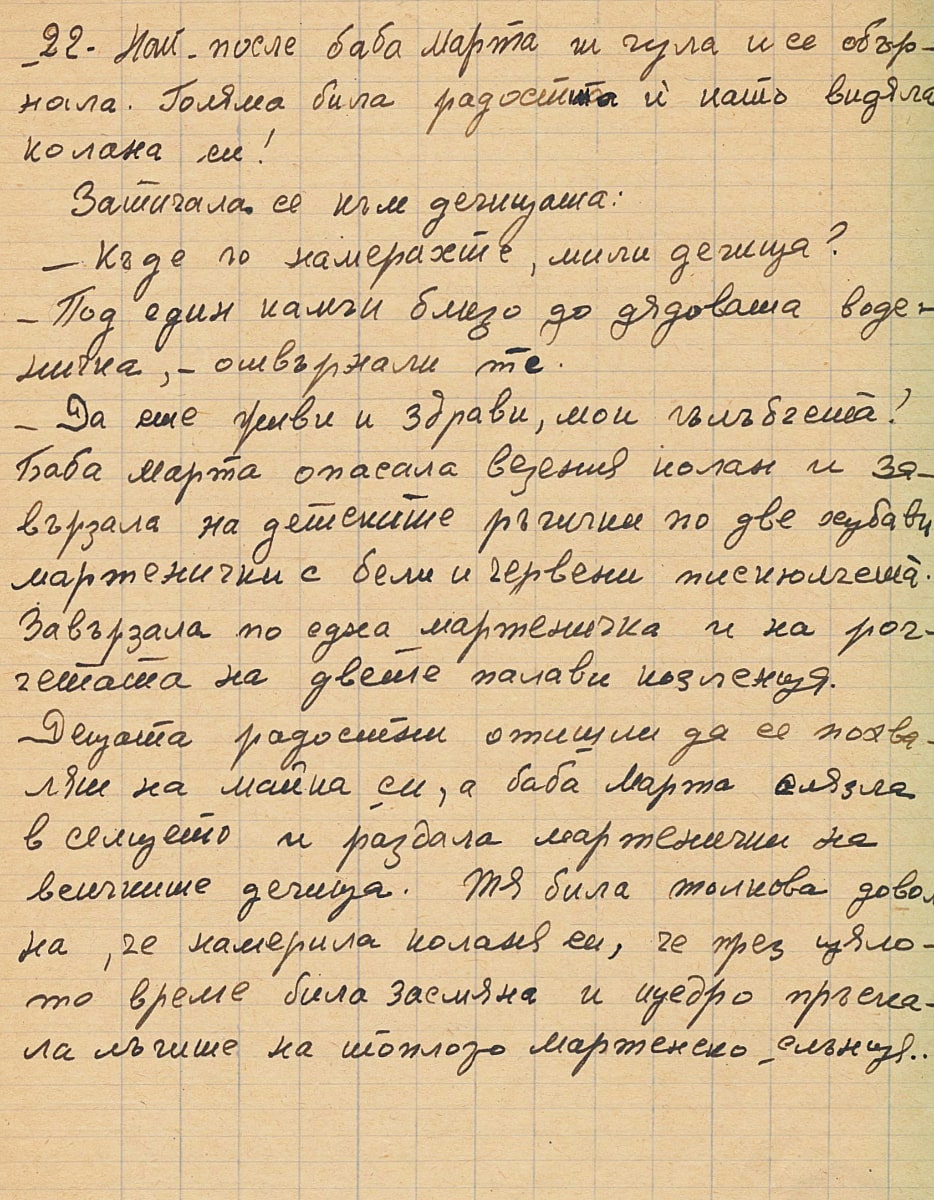 22. Най-после баба Марта ги чула и се обър-
нала. Голяма била радостта ѝ като видяла
колана си!
Затичала се към дечицата:
— Къде го намерахте, мили дечица?
— Под един камък близо до дядовата воде-
ничка, – отвърнали те.
— Да сте живи и здрави, мои гълъбчета!
Баба Марта опасала везения колан и за-
вързала на детските ръчички по две хубави
мартенички с бели и червени пискюлчета.
Завързала по една мартеничка и на рог-
четата на двете палави козленця.
Децата радостни отишли да се похва-
лят на майка си, а баба Марта слязла
в селцето и раздала мартенички на
всичките дечица. Тя била толкова довол
на, че намерила коланя си, че през цяло-
то време била засмяна и щедро пръска-
ла лъчите на топлото мартенско слънце..